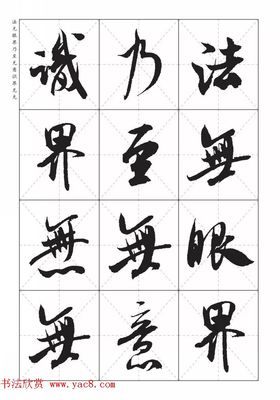 法無眼界
乃至無意
識界無無
法无眼界乃至无意识界无无
书法欣赏
www.yac8.com